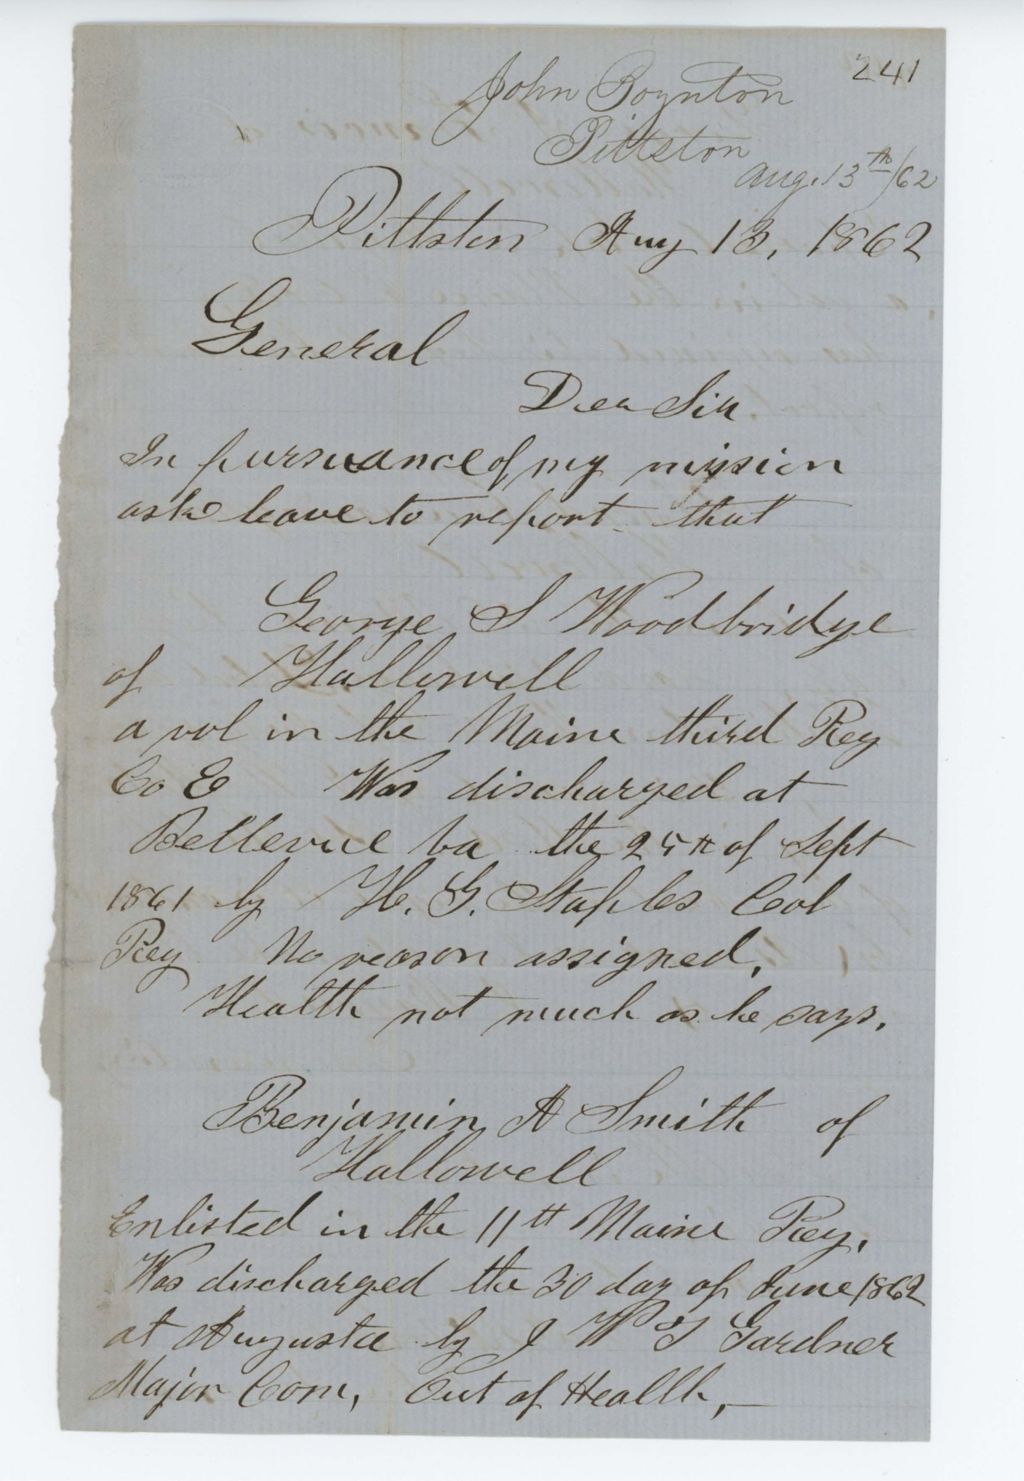 241
John Boynton
Pittston
Aug. 13th/62
Pittston Aug 13, 1862
General
Dear Sir
In pursuance of my mission
ask leave to report that
George S Woodbridge
of Hallowell
a vol in the Maine third Reg
Co E Was discharged at
Bellevue Va the 25th of Sept
1861 by H. G. Staples Col
Reg No reason assigned,
Health not much as he says.
Benjamin A Smith of
Hallowell
Enlisted in the 11th Maine Reg.
Was discharged the 30 day of June 1862
at Augusta by J W T Gardner
Major Com, Out of Health,